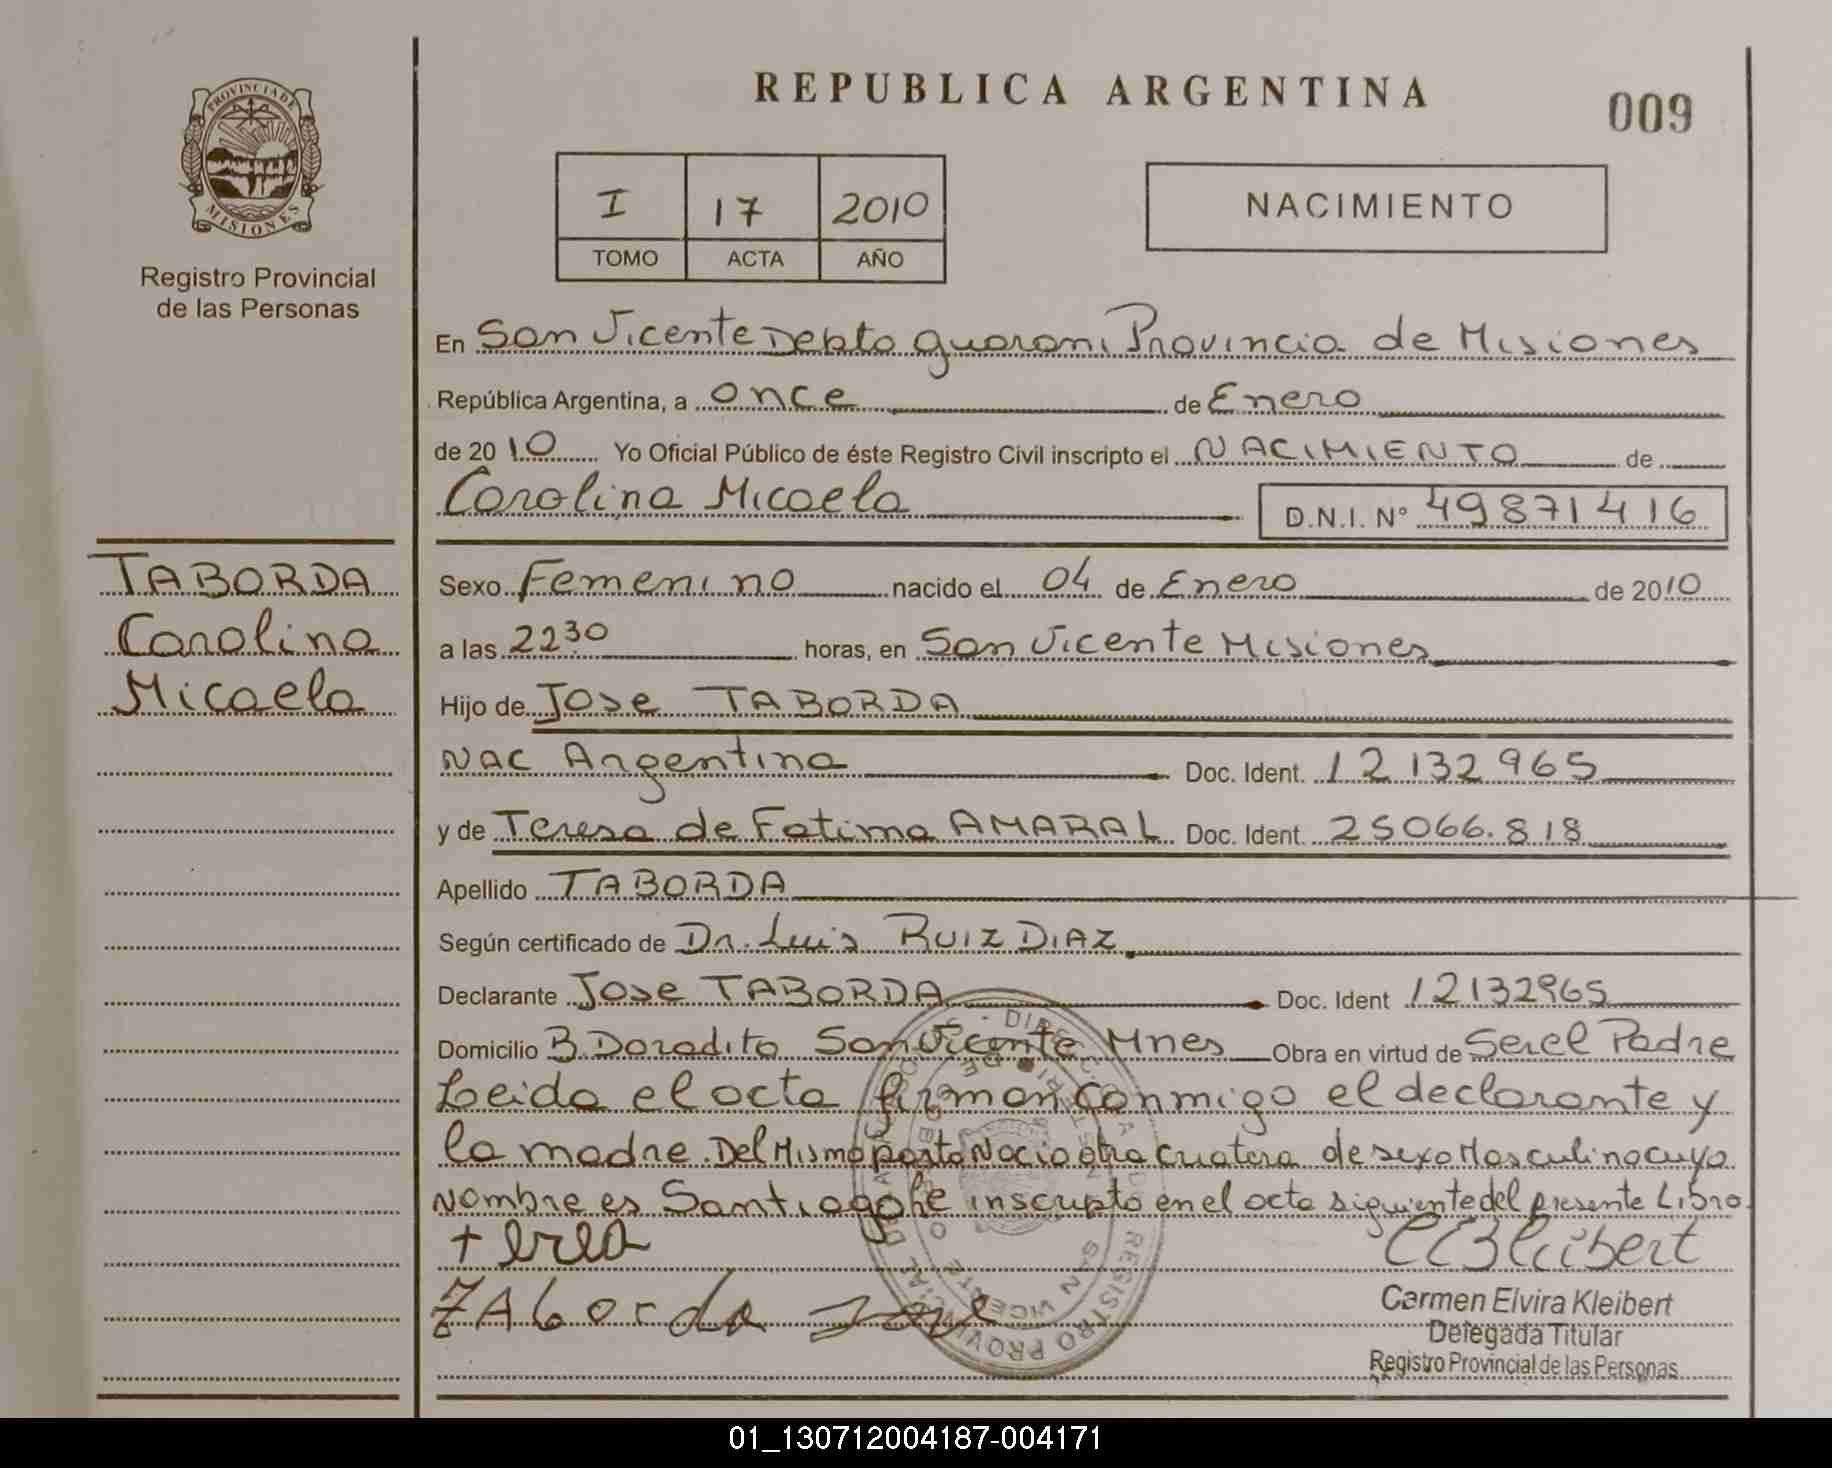 PROVINCIA DE
MISIONES
Registro Provincial
de las Personas
TABORDA
Carolina
Micaela
REPUBLICA ARGENTINA
009
I 17 2010
TOMO ACTA AÑO
NACIMIENTO
En San Vicente Depto guarani Provincia de Misiones
República Argentina, a once de Enero
de 2010 Yo Oficial Público de éste Registro Civil inscripto el NACIMIENTO de
Carolina Micaela D.N.I. N° 49871416
Sexo Femenino nacido el 04 de Enero de 2010
a las 22 30 horas, en San Vicente Misiones
Hijo de Jose TABORDA
NAC Argentina Doc. Ident. 12132965
y de Teresa de Fatima AMARAL Doc. Ident. 25066.818
Apellido TABORDA
Según certificado de Dr. Luis RUIZ DIAZ
Declarante Jose TABORDA Doc. Ident 12132965
Domicilio B. Doradito San Vicente Mnes Obra en virtud de Ser el Padre
Leida el acta firman conmigo el declarante y
la madre. Del Mismo parto Nacio otra criatura de sexo Masculino cuyo
Nombre es Santiago he inscripto en el acta siguiente del presente Libro
TABorda Jose
CEKleibert
Carmen Elvira Kleibert
Delegada Titular
Registro Provincial de las Personas
01_130712004187-004171